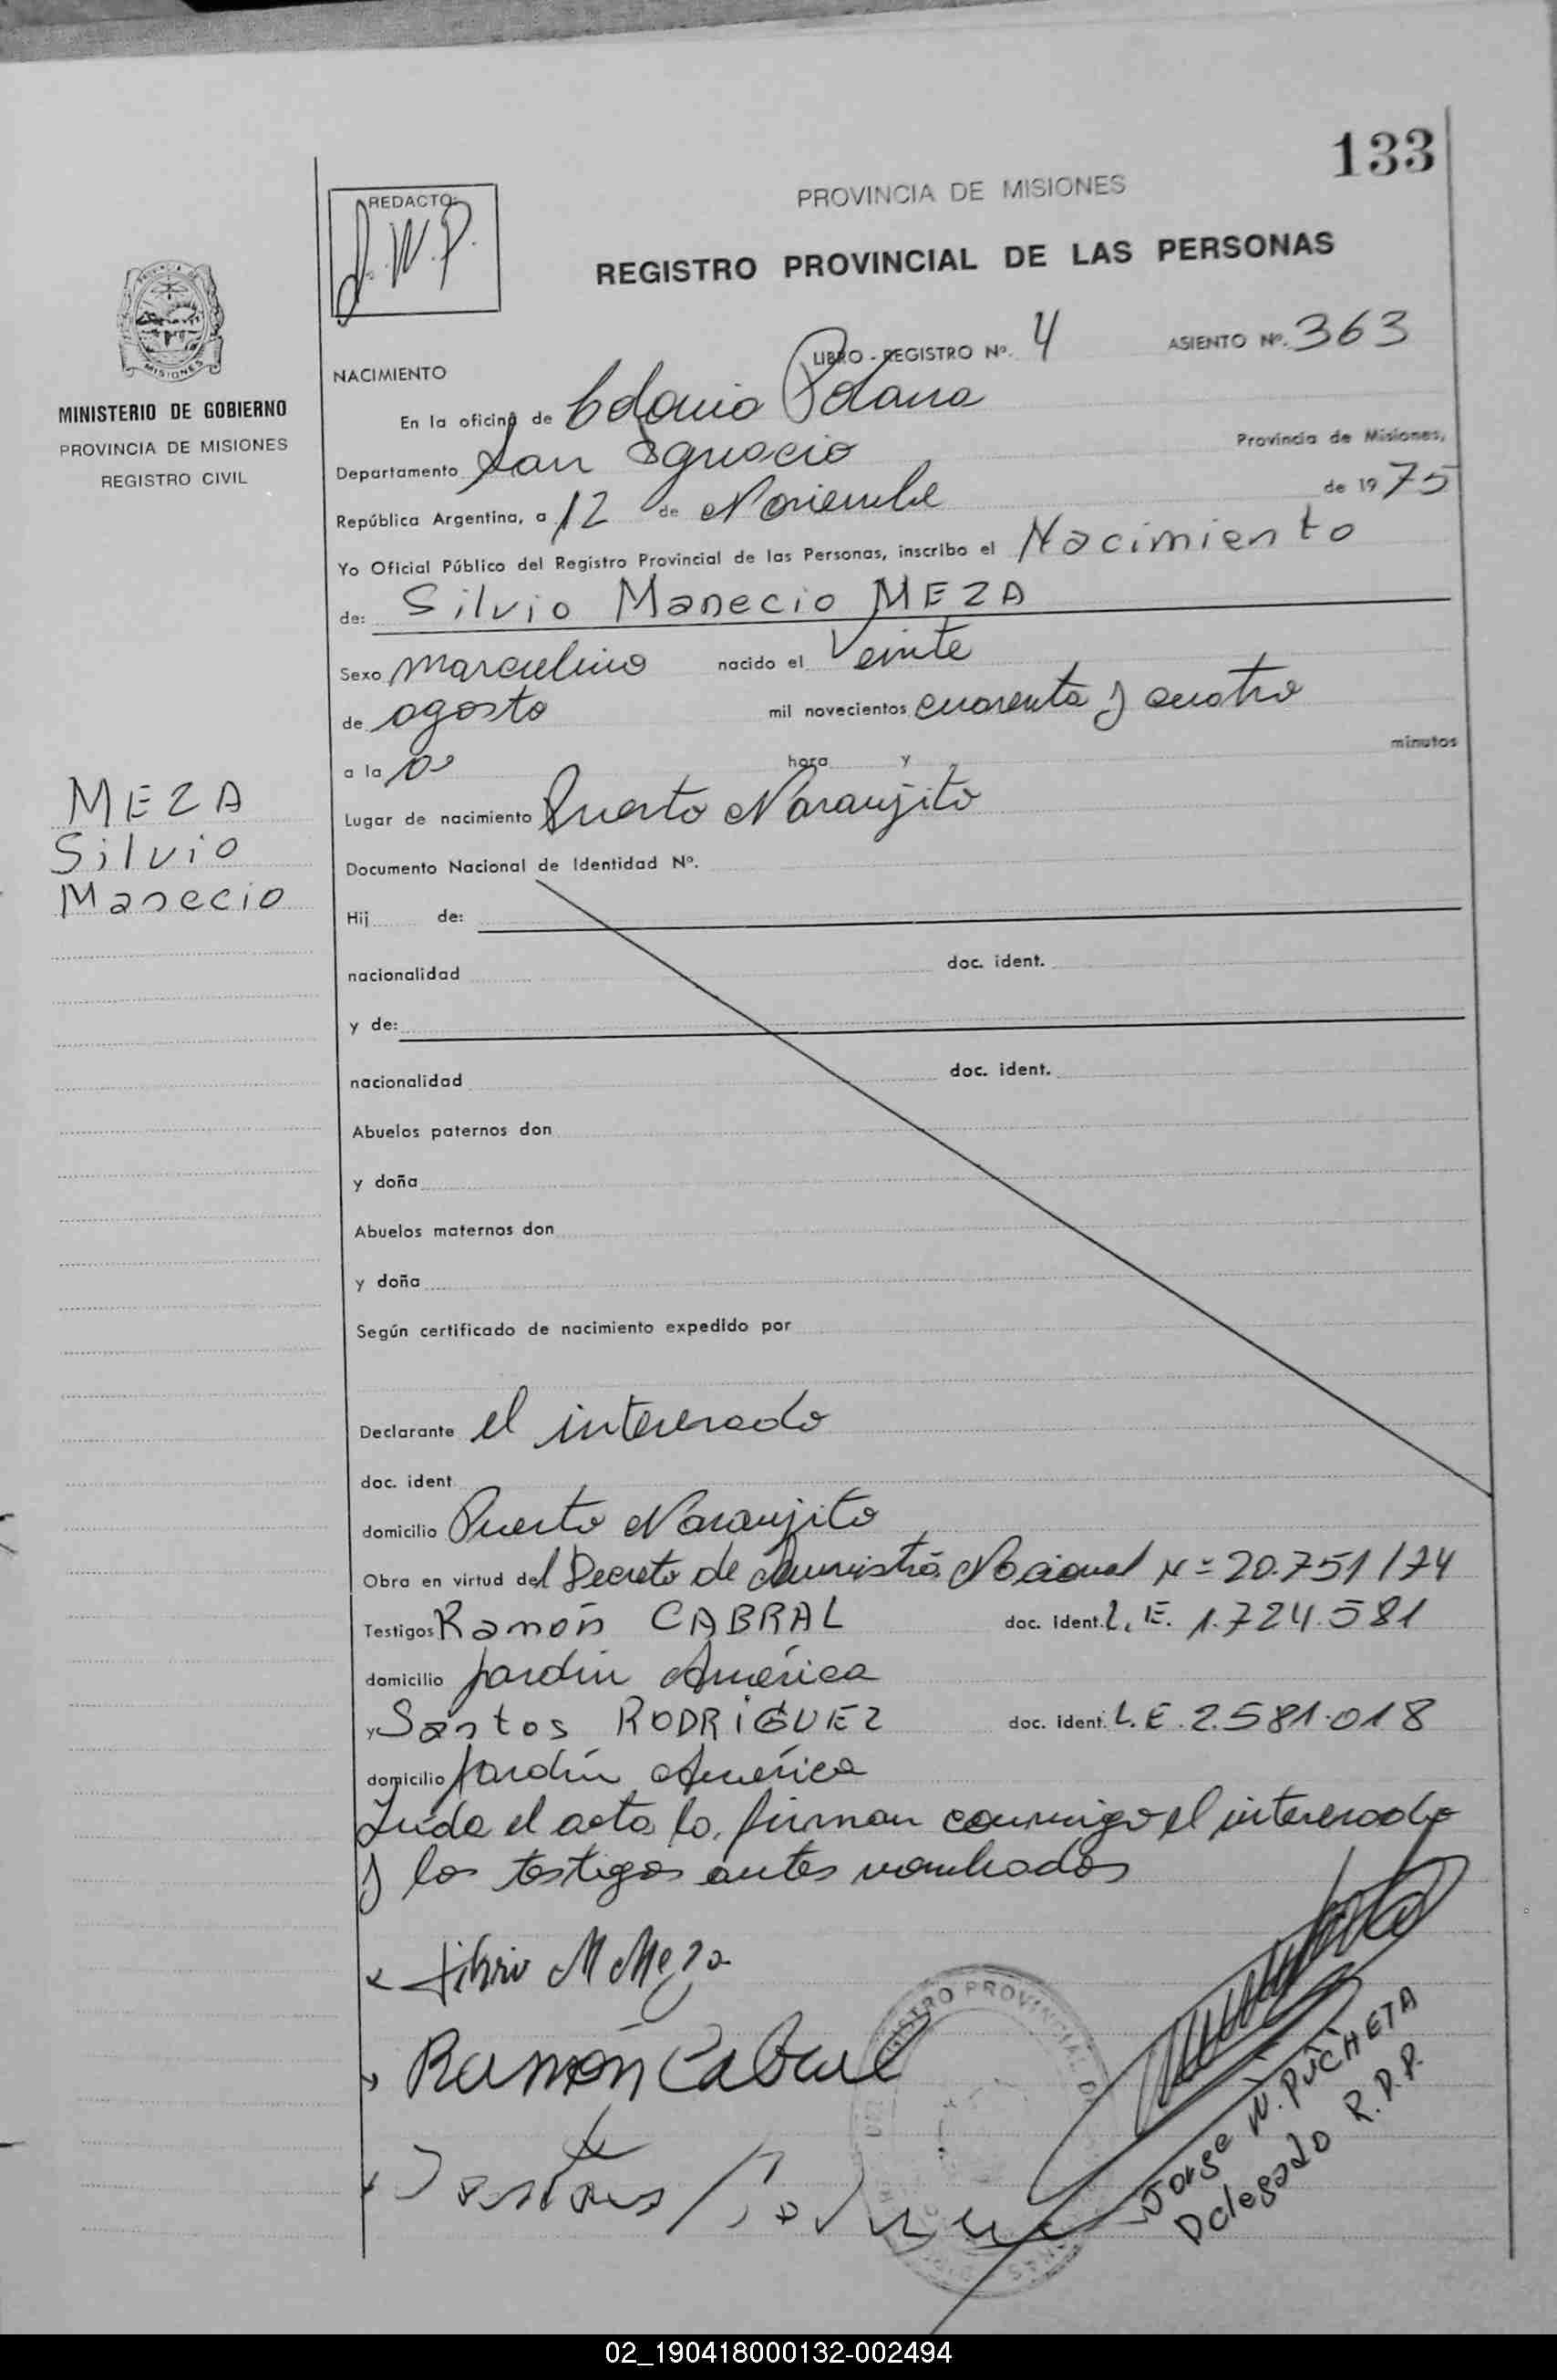 133
REDACTO:
J.W.P.
PROVINCIA DE MISIONES
REGISTRO PROVINCIAL DE LAS PERSONAS
MISIONES
MINISTERIO DE GOBIERNO
PROVINCIA DE MISIONES
REGISTRO CIVIL
LIBRO - REGISTRO Nº. 4 ASIENTO Nº. 363
NACIMIENTO
En la oficina de Colonia Polana
Departamento San Ignacio Provincia de Misiones,
República Argentina, a 12 de Noviembre de 1975
Yo Oficial Público del Registro Provincial de las Personas, inscribo el Nacimiento
de: Silvio Manecio MEZA
Sexo masculino nacido el Veinte
de agosto mil novecientos cuarenta y cuatro
a la 10 hora y minutos
MEZA
Silvio
Manecio
Lugar de nacimiento Puerto Naranjito
Documento Nacional de Identidad Nº.
Hij de:
nacionalidad doc. ident.
y de:
nacionalidad doc. ident.
Abuelos paternos don
y doña
Abuelos maternos don
y doña
Según certificado de nacimiento expedido por
Declarante el interesado
doc. ident
domicilio Puerto Naranjito
Obra en virtud del Decreto de Nacional Nº 20.751/74
Testigos Ramón CABRAL doc. ident. L.E. 1.724.581
domicilio Jardín América
y Santos RODRIGUEZ doc. ident. L.E. 2.581.018
domicilio Jardín América
Leída el acta la firman conmigo el interesado
y los testigos antes nombrados
Silvio M Meza
Ramón Cabral
Santos
REGISTRO PROVINCIAL DE
Jorge W. PUCHETA
Delegado R.D.P.
02_190418000132-002494